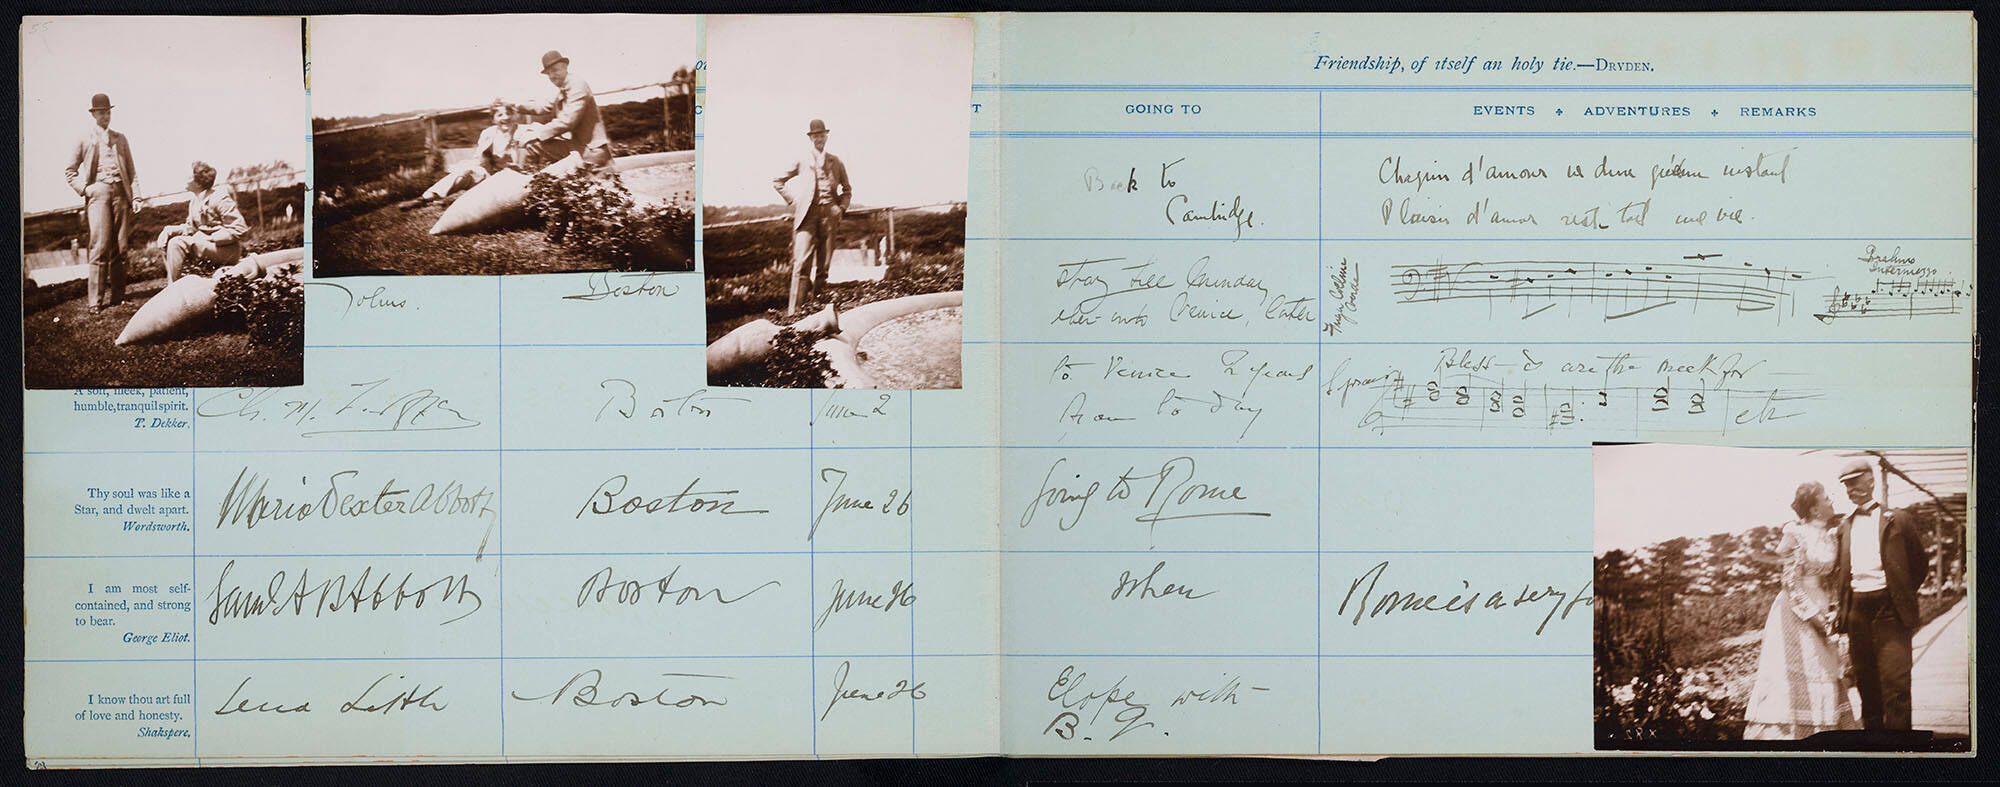 55
Friendship, of itself an holy tie.—DRYDEN.
GOING TO
EVENTS ✦ ADVENTURES ✦ REMARKS
Back to
Cambridge.
Chagrin d'amour
Plaisir d'amour
Johns.
Boston
stay till Sunday
Venice, later
Brahms
Intermezzo
A soft, meek, patient,
humble, tranquil spirit.
T. Dekker.
Boston
June 2
to Venice 2 years
from to day
Bless-ed are the meek for
etc
Thy soul was like a
Star, and dwelt apart.
Wordsworth.
Marie Dexter Abbott
Boston
June 26
Going to Rome
I am most self-
contained, and strong
to bear.
George Eliot.
Saml A B Abbott
Boston
June 26
when
Rome is a very
I know thou art full
of love and honesty.
Shakspere.
Lena Little
Boston
June 26
Elope with
B. G.